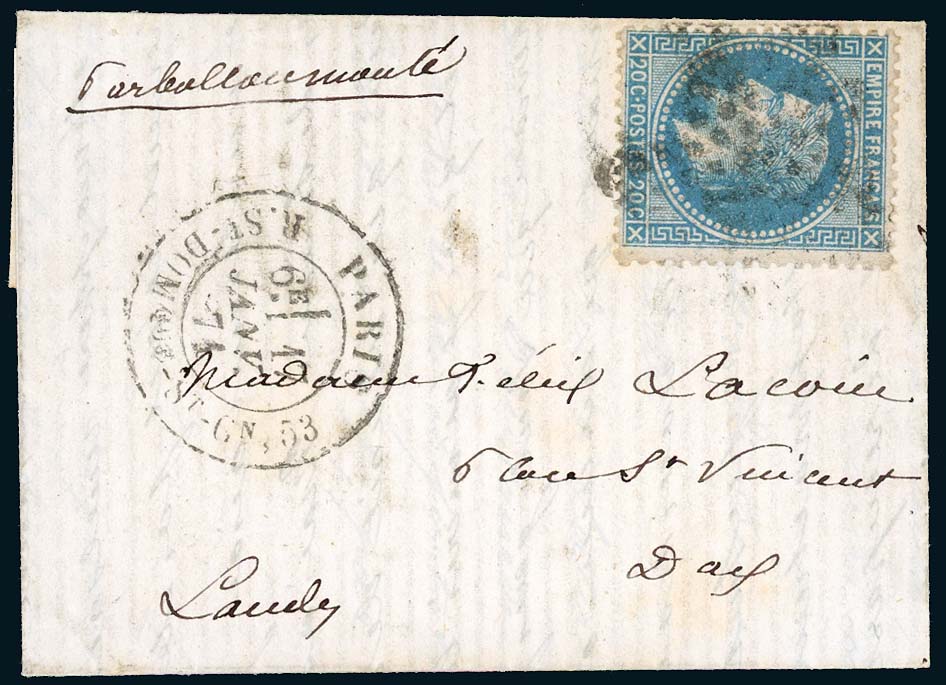 Par ballon monté
EMPIRE FRANÇAIS
20 C · POSTES · 20 C
PARIS
R. ST-DOMQUE-ST-GN, 53
6E
JANV
71
Madame Félix Lacoin
Place St Vincent
Dax
Landes